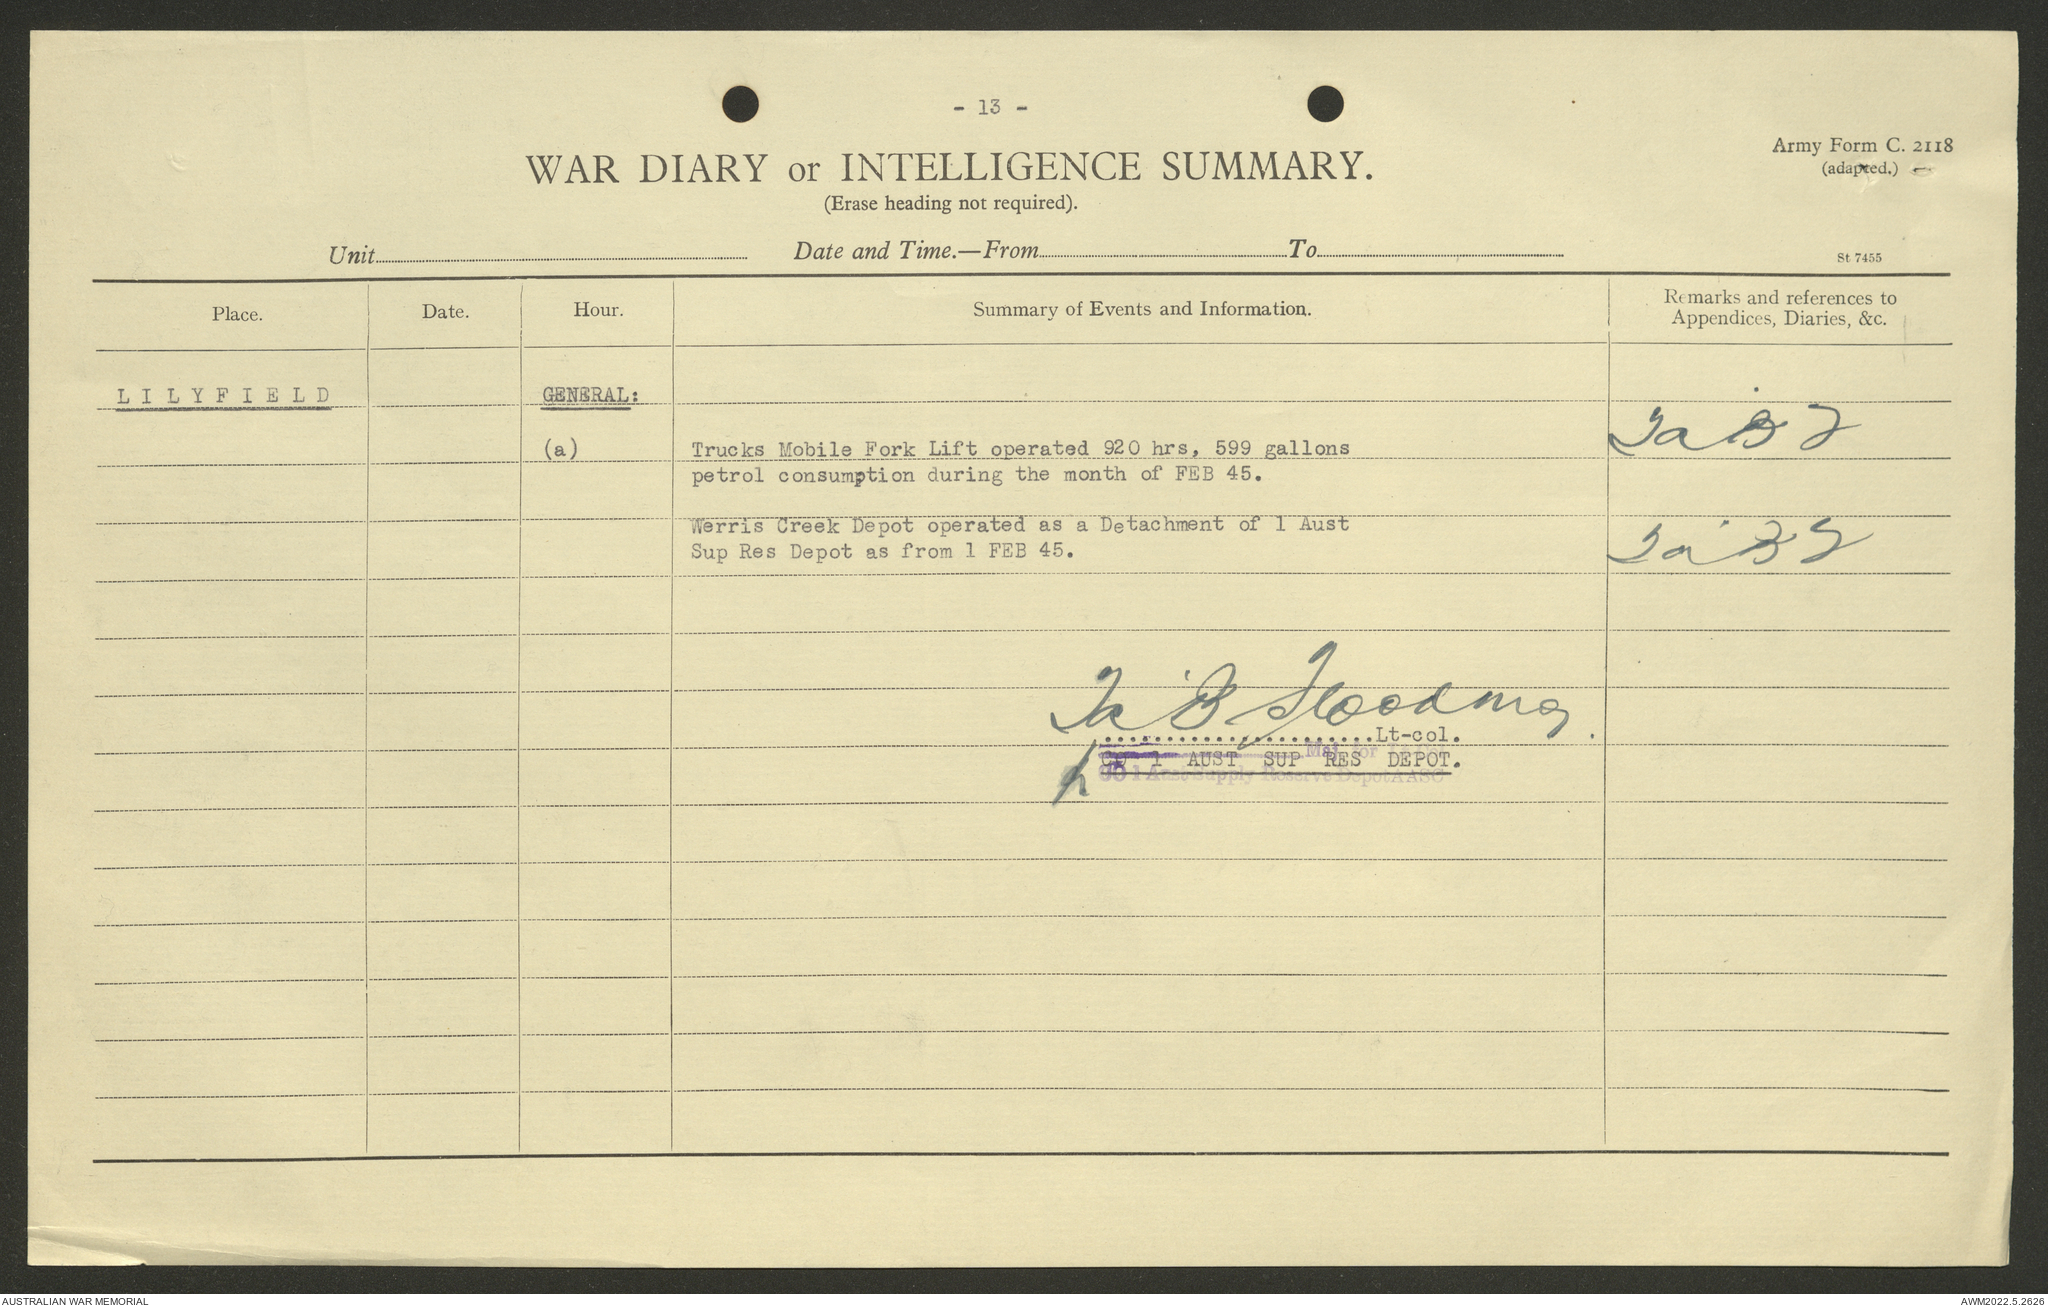 - 13 -
WAR DIARY or INTELLIGENCE SUMMARY.
(Erase heading not required).
Army Form C. 2118
(adapted.)
Unit
Date and Time.—From
To
St 7455
Place.
Date.
Hour.
Summary of Events and Information.
Remarks and references to
Appendices, Diaries, &c.
LILYFIELD
GENERAL:
(a)
Trucks Mobile Fork Lift operated 920 hrs, 599 gallons
petrol consumption during the month of FEB 45.
Werris Creek Depot operated as a Detachment of 1 Aust
Sup Res Depot as from 1 FEB 45.
Lt-col.
Maj. for
CO 1 AUST SUP RES DEPOT.
CO 1 Aust Supply Reserve Depot AASC
AUSTRALIAN WAR MEMORIAL
AWM2022.5.2626